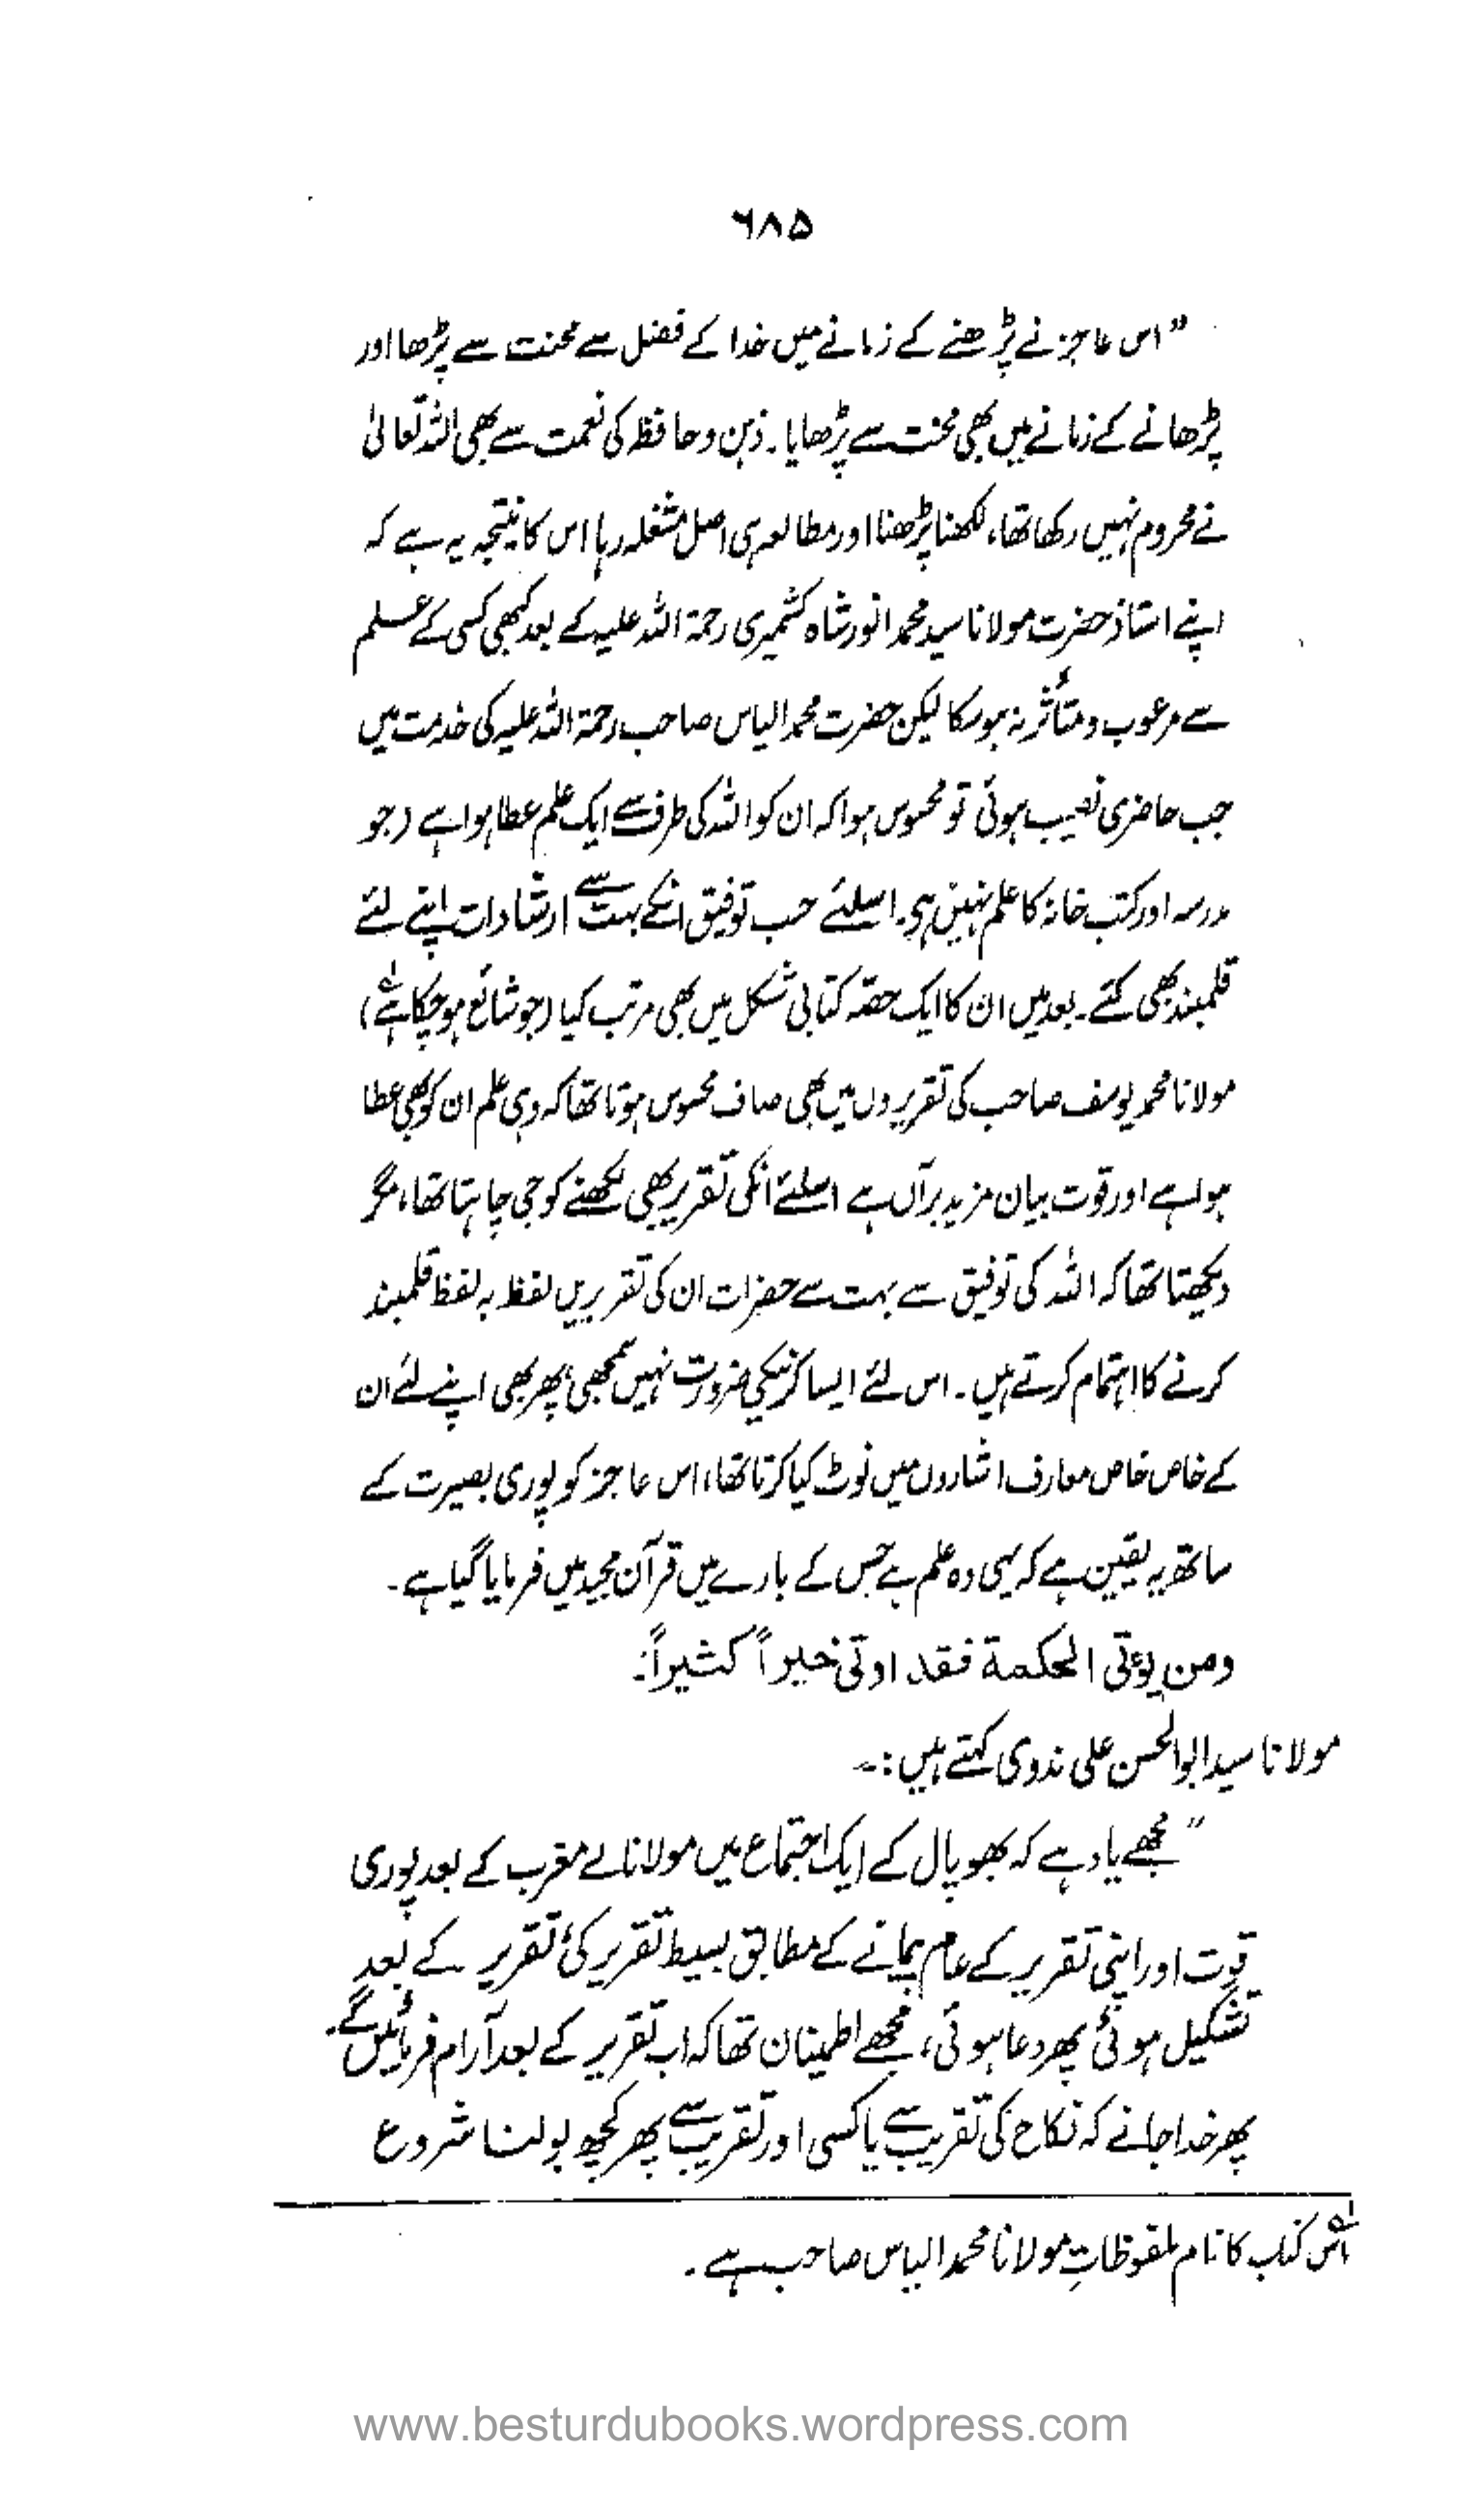 ۶۸۵
”اس عاجز نے پڑھنے کے زمانے میں خدا کے فضل سے محنت سے پڑھا اور
پڑھانے کے زمانے میں بھی محنت سے پڑھایا۔ ذہن و حافظہ کی نعمت سے بھی اللہ تعالیٰ
نے محروم نہیں رکھا تھا، لکھنا پڑھنا اور مطالعہ ہی اصل مشغلہ رہا اس کا نتیجہ یہ ہے کہ
اپنے استاذ حضرت مولانا سید محمد انور شاہ کشمیری رحمۃ اللہ علیہ کے بعد کبھی کسی کے علم
سے مرعوب و متاثر نہ ہو سکا لیکن حضرت محمد الیاس صاحب رحمۃ اللہ علیہ کی خدمت میں
جب حاضری نصیب ہوئی تو محسوس ہوا کہ ان کو اللہ کی طرف سے ایک علم عطا ہوا ہے (جو
مدرسہ اور کتب خانہ کا علم نہیں ہے۔ اسلئے حسب توفیق انکے بہت سے ارشادات اپنے لئے
قلمبند بھی کئے۔ بعد میں ان کا ایک حصہ کتابی شکل میں بھی مرتب کیا (جو شائع ہو چکا ہے)
مولانا محمد یوسف صاحب کی تقریروں میں بھی صاف محسوس ہوتا تھا کہ وہی علم ان کو بھی عطا
ہوا ہے اور قوت بیان مزید برآں ہے اسلئے انکی تقریر بھی لکھنے کو جی چاہتا تھا، مگر
دیکھتا تھا کہ اللہ کی توفیق سے بہت سے حضرات ان کی تقریریں لفظ بہ لفظ قلمبند
کرنے کا اہتمام کرتے ہیں۔ اس لئے ایسا کرنیکی ضرورت نہیں سمجھی، پھر بھی اپنے لئے ان
کے خاص خاص معارف اشاروں میں نوٹ کیا کرتا تھا، اس عاجز کو پوری بصیرت کے
ساتھ یہ یقین ہے کہ یہی وہ علم ہے جس کے بارے میں قرآن مجید میں فرمایا گیا ہے۔
ومن یؤتی الحکمة فقد اوتی خیراً کثیراً:
مولانا سید ابوالحسن علی ندوی کہتے ہیں:۔
”مجھے یاد ہے کہ بھوپال کے ایک اجتماع میں مولانا نے مغرب کے بعد پوری
قوت اور اپنی تقریر کے عام پیمانے کے مطابق بسیط تقریر کی، تقریر کے بعد
تشکیل ہوئی پھر دعا ہوئی، مجھے اطمینان تھا کہ اب تقریر کے بعد آرام فرمائیں گے۔
پھر خدا جانے کہ نکاح کی تقریب سے یا کسی اور تقریب سے پھر کچھ بولنا شروع
اس کتاب کا نام ملفوظاتِ مولانا محمد الیاس صاحب ہے۔
www.besturdubooks.wordpress.com